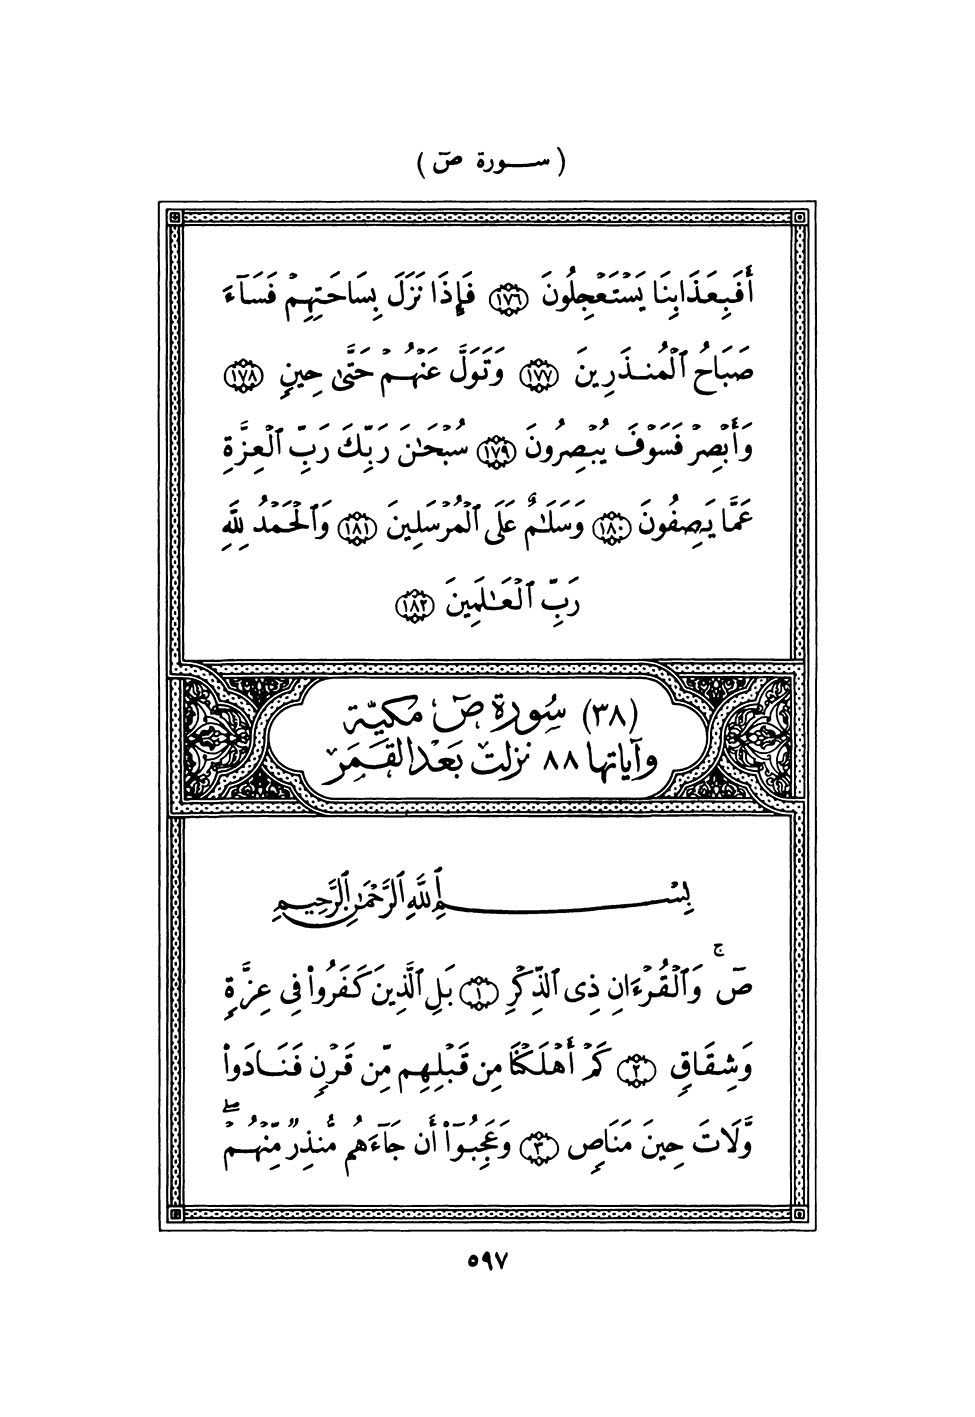 ( ســورة صٓ )
أَفَبِعَذَابِنَا يَسْتَعْجِلُونَ ١٧٦ فَإِذَا نَزَلَ بِسَاحَتِهِمْ فَسَآءَ
صَبَاحُ ٱلْمُنذَرِينَ ١٧٧ وَتَوَلَّ عَنْهُمْ حَتَّىٰ حِينٍ ١٧٨
وَأَبْصِرْ فَسَوْفَ يُبْصِرُونَ ١٧٩ سُبْحَٰنَ رَبِّكَ رَبِّ ٱلْعِزَّةِ
عَمَّا يَصِفُونَ ١٨٠ وَسَلَٰمٌ عَلَى ٱلْمُرْسَلِينَ ١٨١ وَٱلْحَمْدُ لِلَّهِ
رَبِّ ٱلْعَٰلَمِينَ ١٨٢
(٣٨) سُورة صٓ مكيّة
وآياتها ٨٨ نزلت بَعْد القَمَر
بِسْمِ ٱللَّهِ ٱلرَّحْمَٰنِ ٱلرَّحِيمِ
صٓ ۚ وَٱلْقُرْءَانِ ذِى ٱلذِّكْرِ ١ بَلِ ٱلَّذِينَ كَفَرُوا۟ فِى عِزَّةٍ
وَشِقَاقٍ ٢ كَمْ أَهْلَكْنَا مِن قَبْلِهِم مِّن قَرْنٍ فَنَادَوا۟
وَّلَاتَ حِينَ مَنَاصٍ ٣ وَعَجِبُوٓا۟ أَن جَآءَهُم مُّنذِرٌ مِّنْهُمْ ۖ
٥٩٧